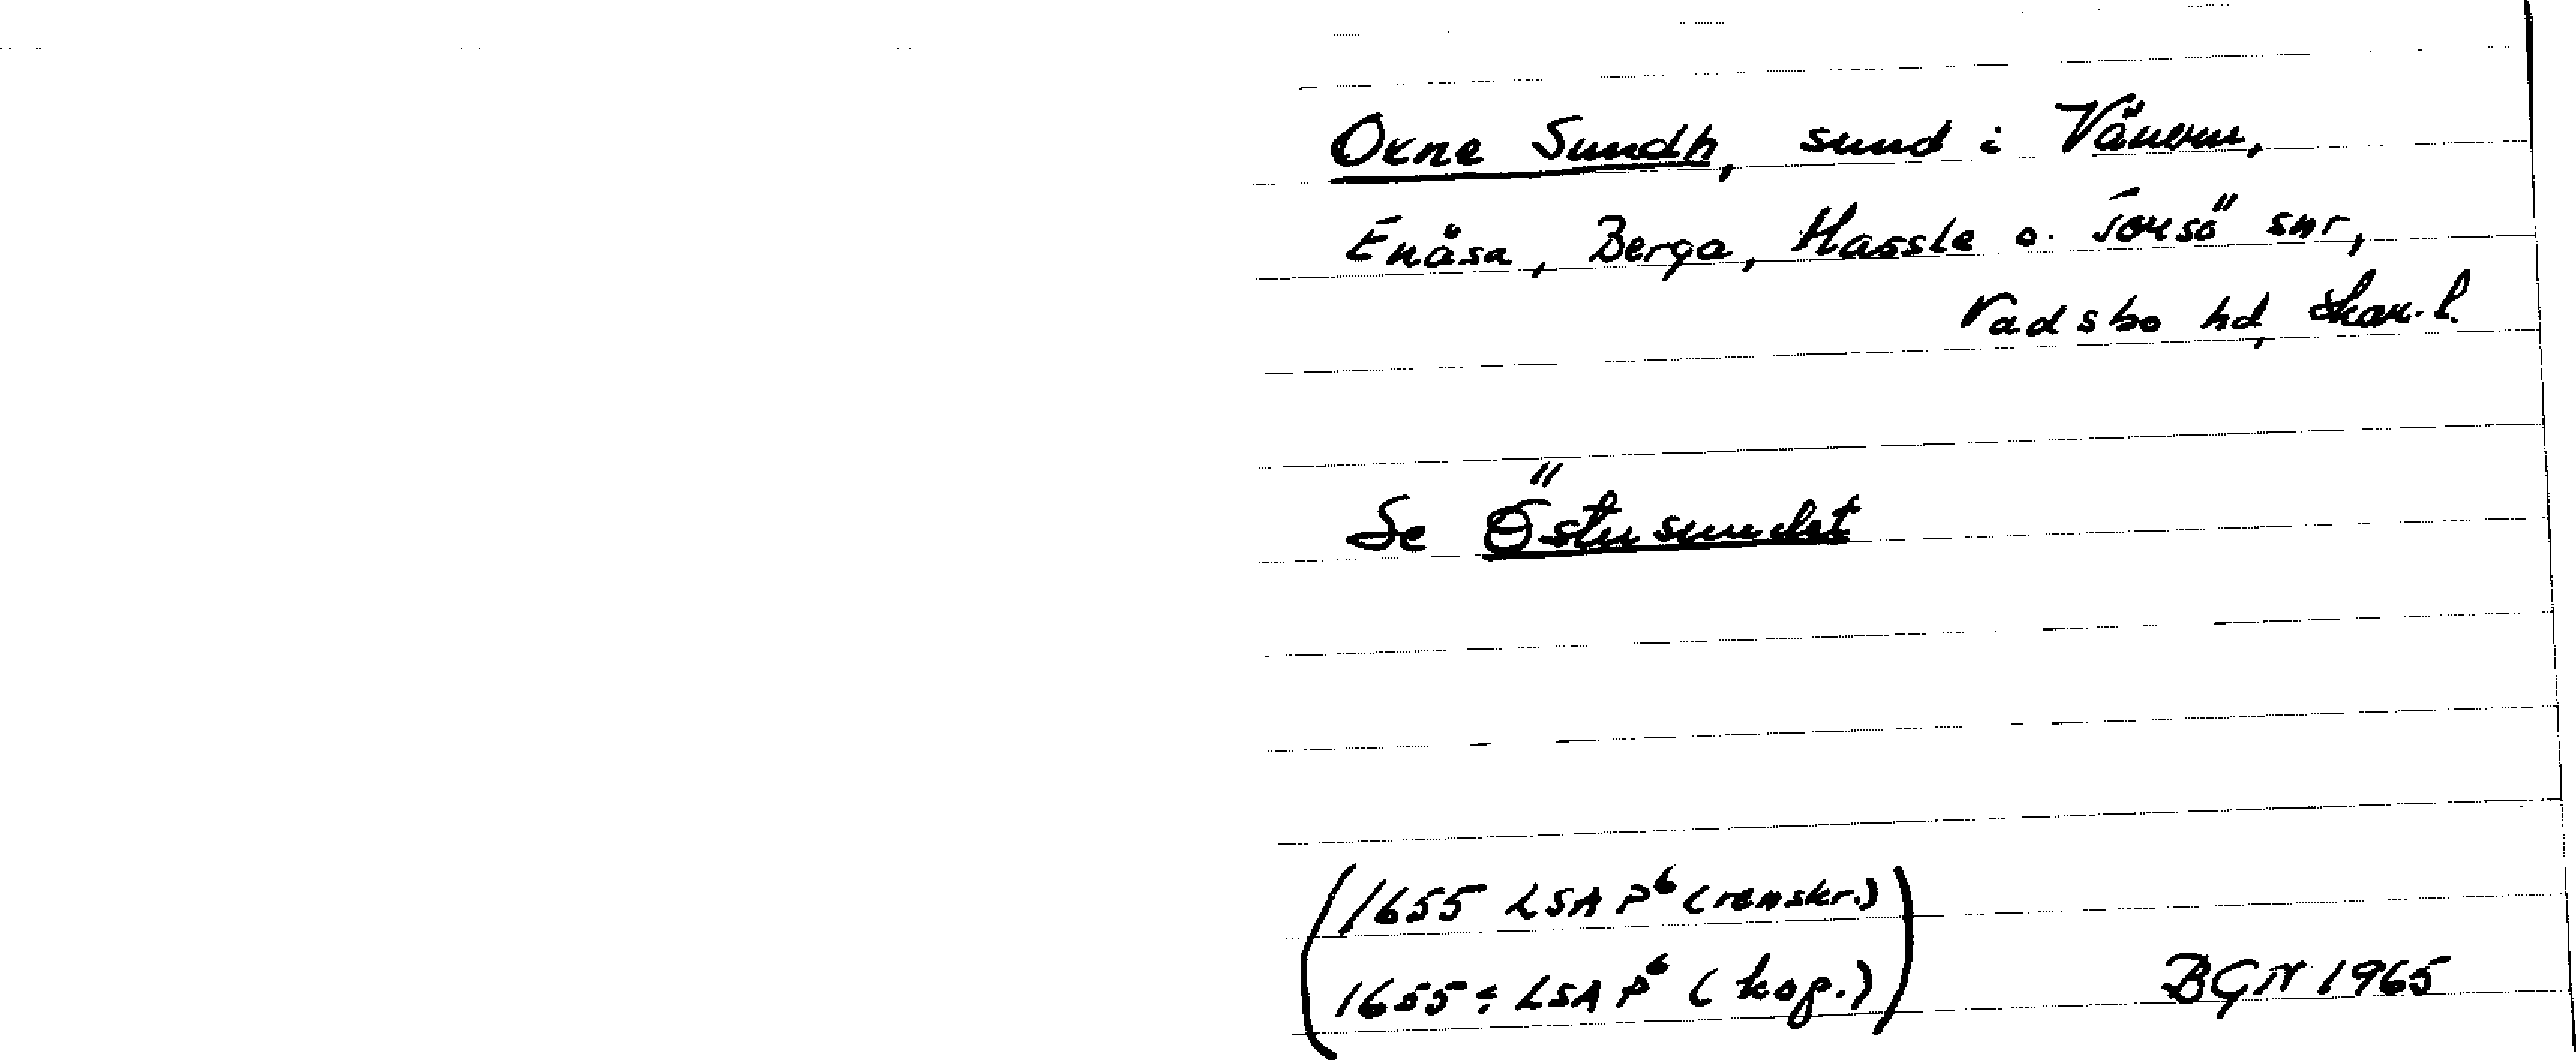 Oxne Sundh, sund i Vänern,
Enåsa, Berga, Hassle o. Torsö snr,
Vadsbo hd, Skar. l.
Se Östersundet
(1655 LSA P6 (renskr.)
1655: LSA P6 (kop.))
BGN 1965